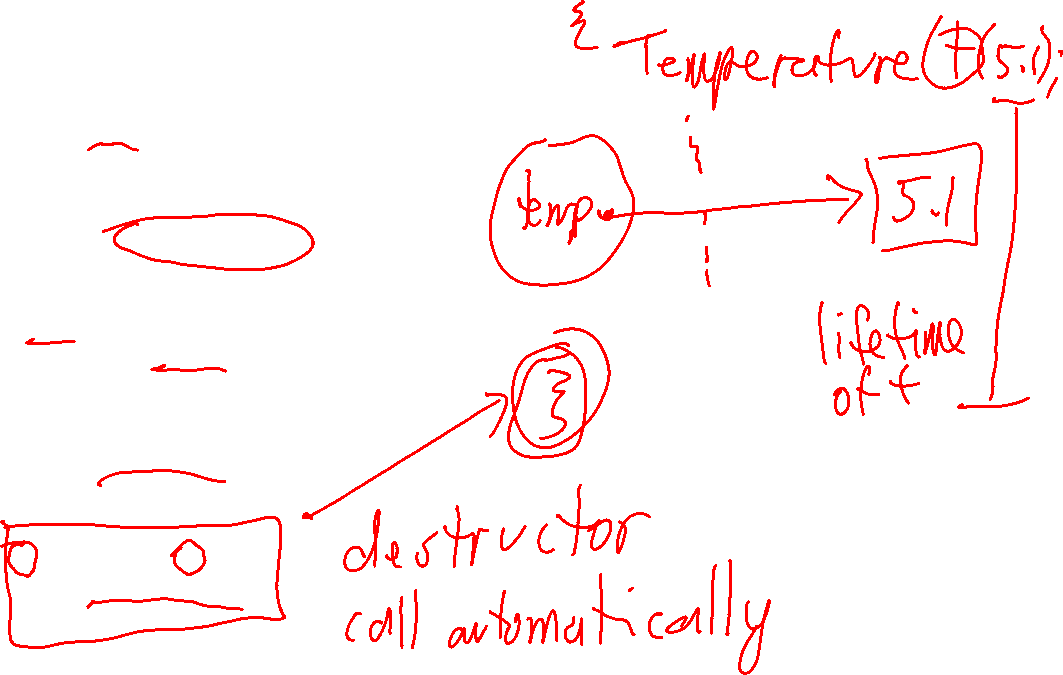 {
Temperature t(5.1);
temp
5.1
lifetime
of t
}
destructor
call automatically